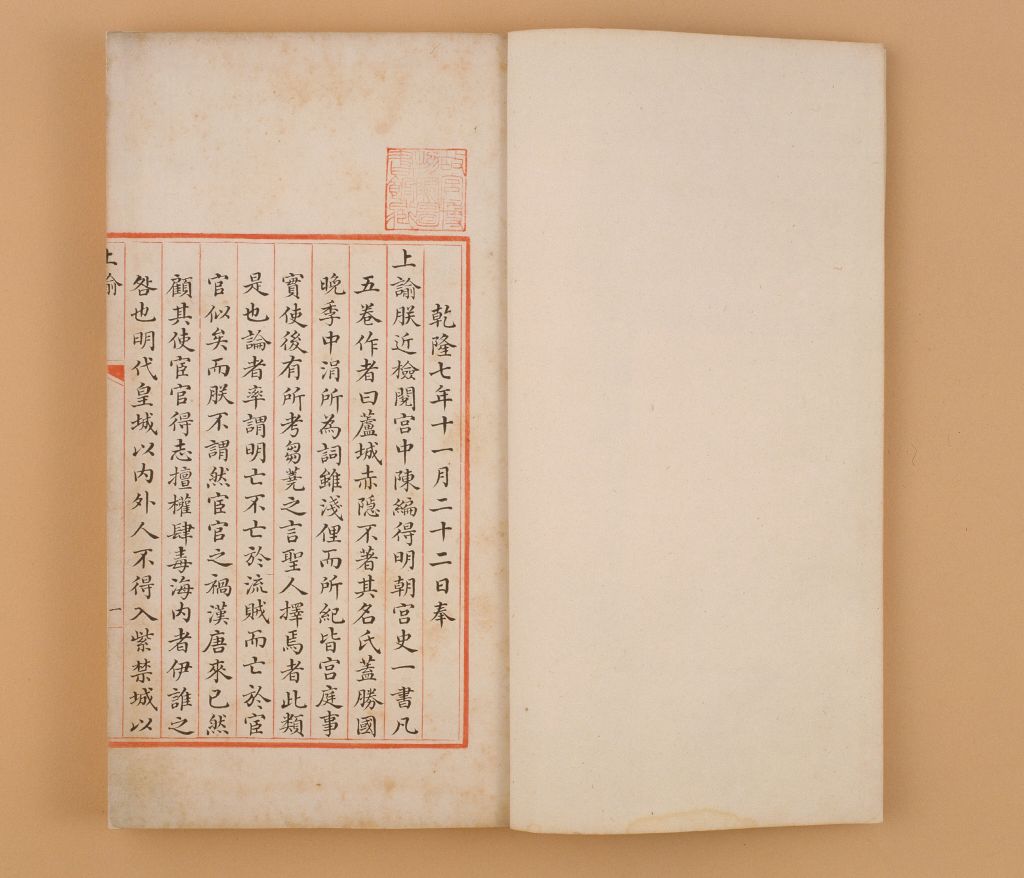 故宮博
物院圖
書館藏
乾隆七年十一月二十二日奉
上諭朕近檢閱宫中陳編得明朝宫史一書凡
五卷作者曰蘆城赤隱不著其名氏蓋勝國
晚季中涓所為詞雖淺俚而所紀皆宫庭事
實使後有所考芻蕘之言聖人擇焉者此類
是也論者率謂明亡不亡於流賊而亡於宦
官似矣而朕不謂然宦官之禍漢唐來已然
顧其使宦官得志擅權肆毒海内者伊誰之
咎也明代皇城以内外人不得入紫禁城以
上諭
一